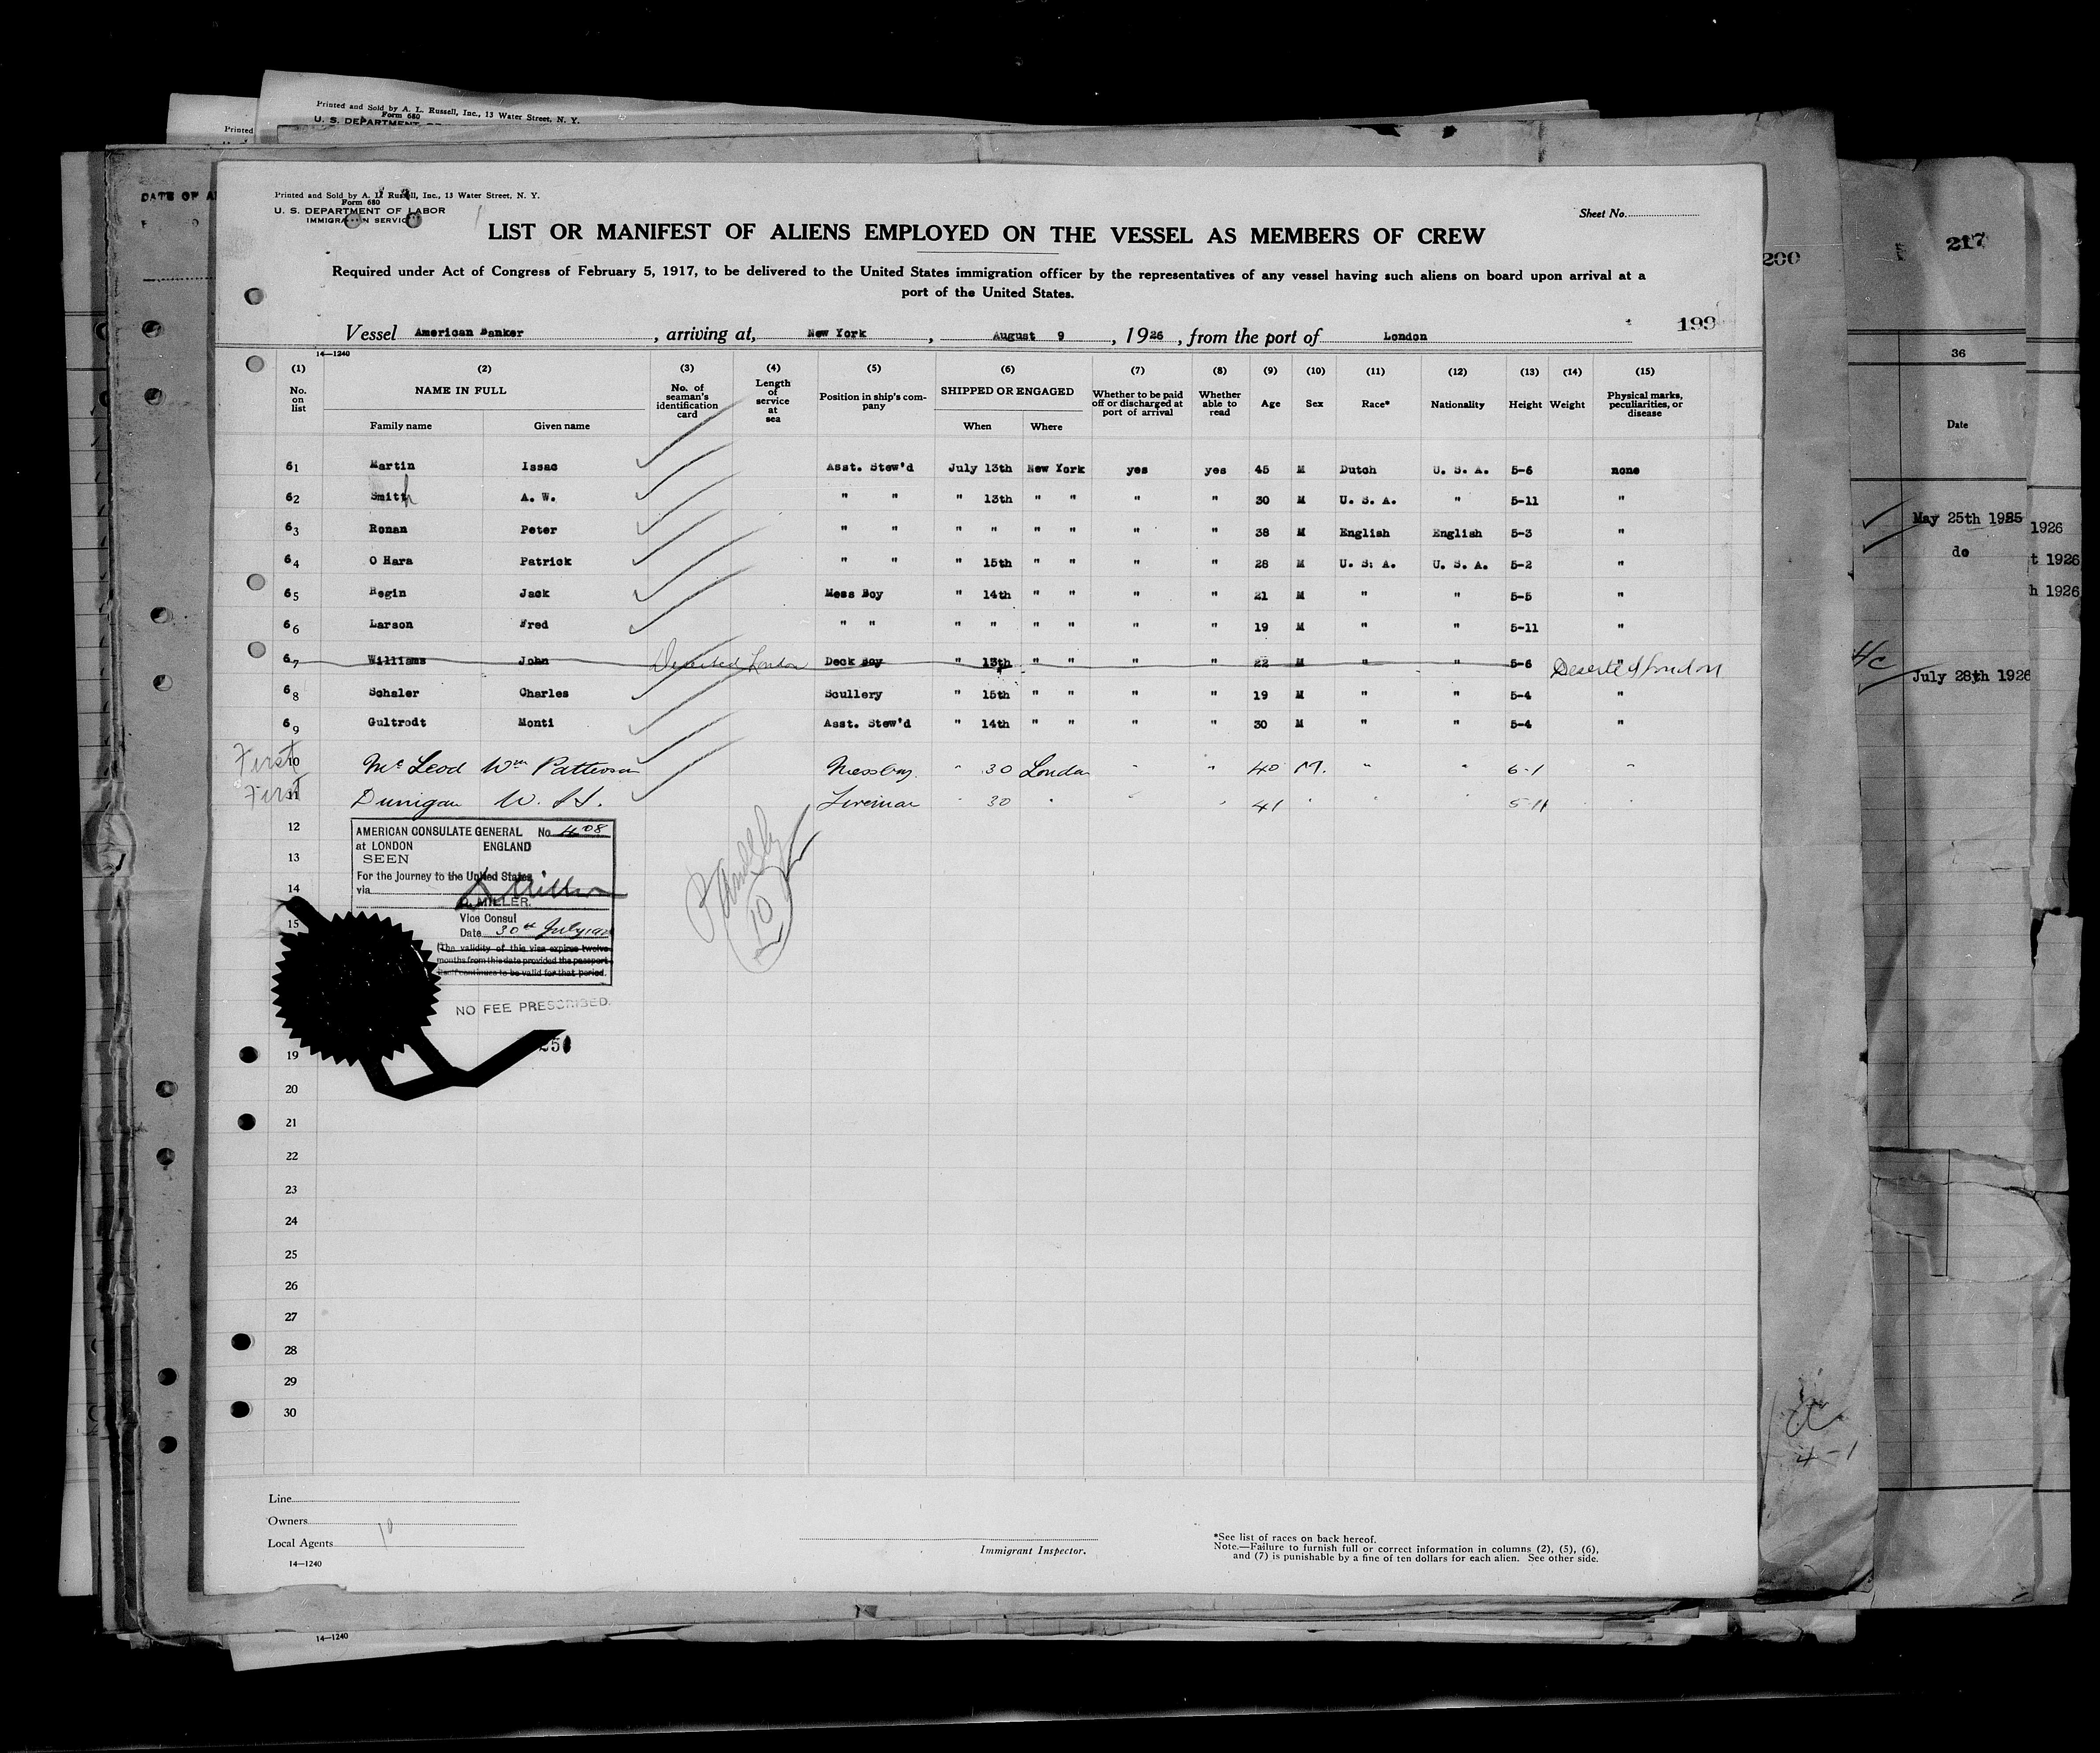 Printed and Sold by A. L. Russell, Inc., 13 Water Street, N. Y.
Form 680
U. S. DEPARTMENT OF
Printed
DATE OF
Printed and Sold by A. L. Russell, Inc., 13 Water Street, N. Y.
Form 680
U. S. DEPARTMENT OF LABOR
IMMIGRATION SERVICE
Sheet No.
LIST OR MANIFEST OF ALIENS EMPLOYED ON THE VESSEL AS MEMBERS OF CREW
Required under Act of Congress of February 5, 1917, to be delivered to the United States immigration officer by the representatives of any vessel having such aliens on board upon arrival at a
port of the United States.
199
Vessel American Banker, arriving at, New York, August 9, 1926, from the port of London
14—1240
(1) No. on list (2) NAME IN FULL Family name Given name (3) No. of seaman's identification card (4) Length of service at sea (5) Position in ship's company (6) SHIPPED OR ENGAGED When Where (7) Whether to be paid off or discharged at port of arrival (8) Whether able to read (9) Age (10) Sex (11) Race* (12) Nationality (13) Height (14) Weight (15) Physical marks, peculiarities, or disease
61 Martin Issac Asst. Stew'd July 13th New York yes yes 45 M Dutch U. S. A. 5-6 none
62 Smith A. W. " " " 13th " " " " 30 M U. S. A. " 5-11 "
63 Ronan Peter " " " " " " " " 38 M English English 5-3 "
64 O Hara Patrick " " " 15th " " " " 28 M U. S. A. U. S. A. 5-2 "
65 Regin Jack Mess Boy " 14th " " " " 21 M " " 5-5 "
66 Larson Fred " " " " " " " " 19 M " " 5-11 "
67 Williams John Deserted London Deck Boy " 13th " " " " 22 M " " 5-6 " Deserted London
68 Schaler Charles Scullery " 15th " " " " 19 M " " 5-4 "
69 Gultrodt Monti Asst. Stew'd " 14th " " " " 30 M " " 5-4 "
First 10 McLeod Wm Patterson Messboy " 30 London " " 40 M. " " 6-1 "
First 11 Dunigan W. Fireman " 30 " " " 41 " " " 5-11 "
12
13
14
15
19
20
21
22
23
24
25
26
27
28
29
30
AMERICAN CONSULATE GENERAL No. 408
at LONDON ENGLAND
SEEN
For the Journey to the United States
via
D. MILLER.
Vice Consul
Date 30th July
(The validity of this visa expires twelve
months from this date provided the passport
continues to be valid for that period.
NO FEE PRESCRIBED.
10
Line
Owners
Local Agents
10
14—1240
Immigrant Inspector.
*See list of races on back hereof.
Note.—Failure to furnish full or correct information in columns (2), (5), (6),
and (7) is punishable by a fine of ten dollars for each alien. See other side.
14—1240
200
217
36
Date
May 25th 1925
do
July 28th 1926
1926
t 1926
h 1926
4-1